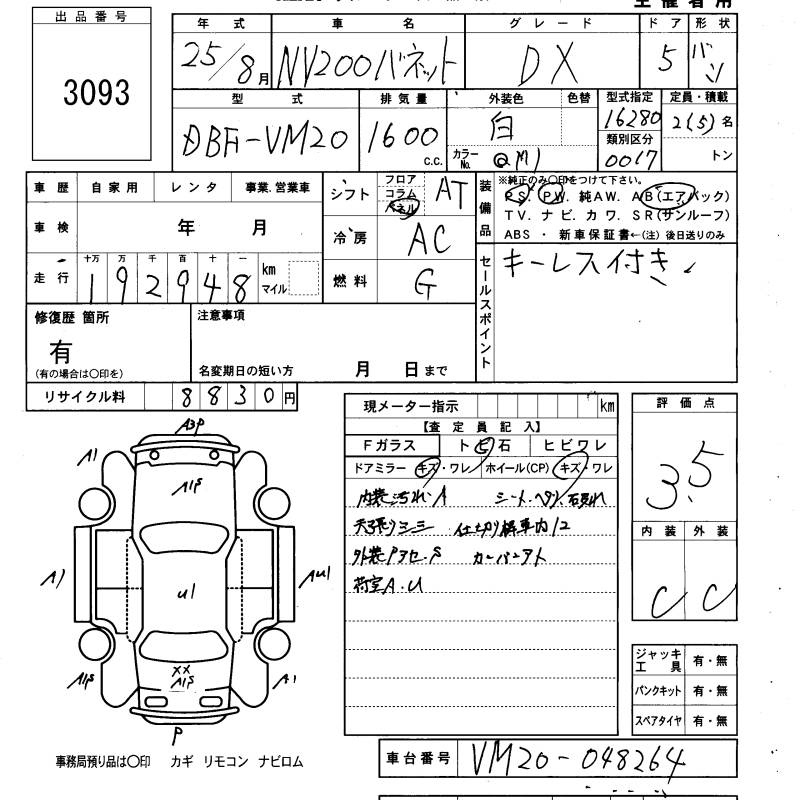 主催者用
出品番号
3093
年式 車名 グレード ドア 形状
25/8月 NV200バネット DX 5 バン
型式 排気量 外装色 色替 型式指定 定員・積載
DBF-VM20 1600 c.c. 白 16280 2(5)名
カラーNo. QM1 類別区分 0017 トン
車歴 自家用 レンタ 事業.営業車
シフト フロア コラム パネル AT
装備品 ※純正のみ○印をつけて下さい。
P.S. P.W. 純AW. AB(エアバック)
TV. ナビ. カワ. SR(サンルーフ)
ABS ・ 新車保証書←(注)後日送りのみ
車検 年 月
冷房 AC
走行 十万 万 千 百 十 一
192948 km マイル
燃料 G
セールスポイント キーレス付き
修復歴 箇所
有
(有の場合は○印を)
注意事項
名変期日の短い方 月 日まで
リサイクル料 8830円
現メーター指示 km
【査定員記入】
Fガラス トビ石 ヒビワレ
ドアミラー キズ・ワレ ホイール(CP) キズ・ワレ
内装汚れ.A シートヘタリ.
天張りシミ 仕切り棒車内12
外装Pアセ.S カーバンアト
荷室A.U
評価点
3.5
内装 外装
C C
A3P
A1
A1S
A1
U1
AU1
XX
A1S
A1S
A1
P
ジャッキ工具 有・無
パンクキット 有・無
スペアタイヤ 有・無
事務局預り品は○印 カギ リモコン ナビロム
車台番号 VM20-048264